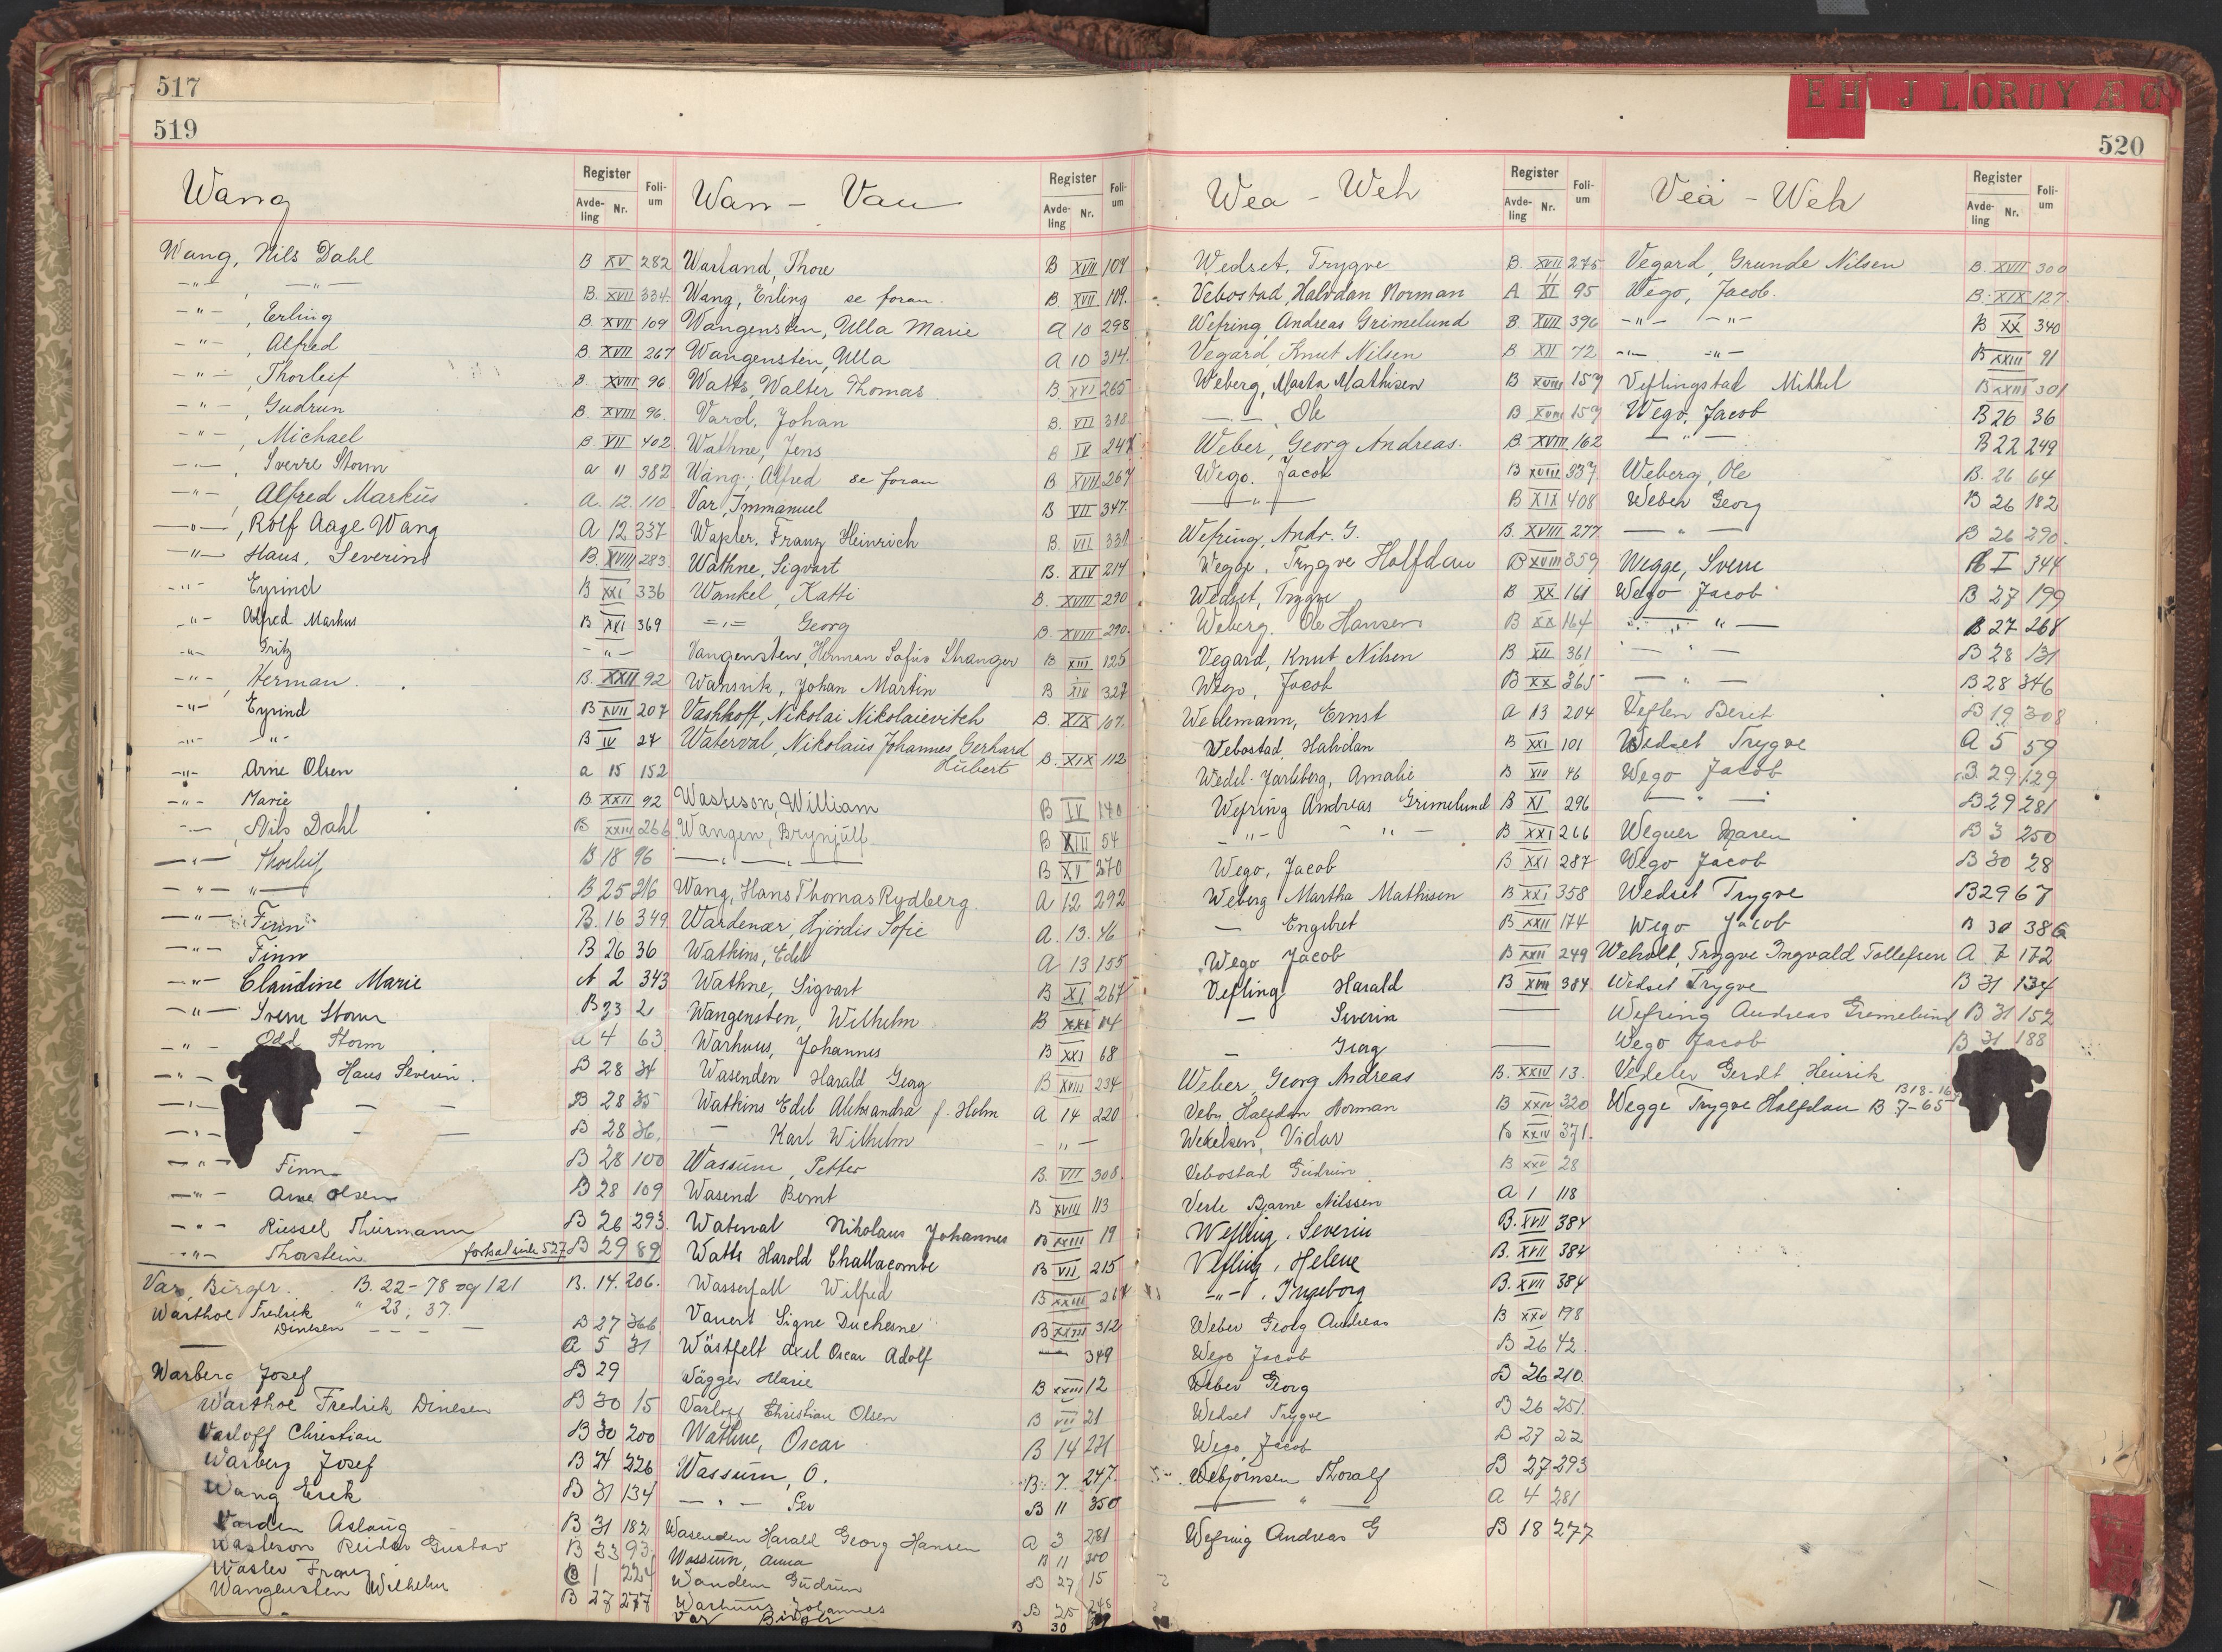 517
519
Wang
Register
Avde-
ling
Nr.
Foli-
um
Wang, Nils Dahl B XV 282
-"- -"- B. XVII 334.
-"-, Erling B XVII 109
-"-, Alfred B. XVII 267
-"-, Thorleif B. XVIII 96
-"-, Gudrun B. XVIII 96.
-"-, Michael B VII 402
-"-, Sverre Storm a 11 382
-"- Alfred Markus A. 12. 110
-"-, Rolf Aage Wang A 12 337
-"- Hans, Severin B. XVIII 283
-"- Eyvind B XXI 336
-"- Alfred Markus B XXI 369
-"- Fritz -"-
-"-, Herman. B. XXII 92
-"- Eyvind B XVII 207
-"- -"- B IV 24
-"- Arne Olsen a 15 152
-"- Marie B XXII 92
-"-, Nils Dahl B XXIII 266
-"- Thorleif B 18 96
-"- -"- B 25 216
-"- Finn B. 16 349
-"- Finn B 26 36
-"- Claudine Marie A 2 343
-"- Sverre Storm B 23 2
-"- Odd Storm a 4 63
-"- Hans Severin. B 28 34
-"- - - B 28 35
-"- - - B 28 36.
-"- Finn B 28 100
-"- Arne Olsen B 28 109
-"- Riessel Thurmann B 26 293.
-"- Thorstein fortsat side 527 B 29 89
Var, Birger. B. 22-78 og 121 B. 14. 206.
Warthoe Fredrik " 23, 37.
Dinesen - - - - B 27 366
A 5 31
Warberg Josef B 29
Warthoe Fredrik Dinesen B 30 15
Varloff Christian B 30 200
Warberg Josef B 24 226
Wang Erik B 31 134
Varden Aslaug B 31 182
Wasteson Reidar Gustav B 33 93
Wasler Franz B 1 224
Wangensten Wilhelm B 27 277
Wan - Vau
Register
Avde-
ling
Nr.
Foli-
um
Warland, Thore B XVII 104
Wang, Erling se foran. B. XVII 109.
Wangensten, Ulla Marie A 10 298
Wangensten, Ulla A 10 314.
Watts, Walter Thomas. B. XVI 265
Vard, Johan B. VII 318
Wathne, Jens B IV 247
Wang, Alfred se foran B XVII 267
Var, Immanuel B VII 347.
Wapler, Franz Heinrich B. VII 331
Wathne, Sigvart B. XIV 214
Wankel, Katti B. XVIII 290
-"- Georg B. XVIII 290.
Vangensten, Herman Sofus Stranger B XIII 125
Wansvik, Johan Martin B XIV 327
Vashkoff, Nikolai Nikolaievitch B. XIX 107.
Waterval, Nikolaus Johannes Gerhard
Hubert B. XIX 112
Wasteson, William B IV 140
Wangen, Brynjulf B XIII 54
-"- -"- B XV 270
Wang, Hans Thomas Rydberg. A 12 292
Wardenær, Hjördis Sofie A. 13. 46
Watkins, Edel A 13 155
Wathne, Sigvart B XI 267
Wangensten, Wilhelm B XXI 14
Warhuus, Johannes B XXI 68
Wasenden Harald Georg B XVIII 234
Watkins Edel Aleksandra f. Holm A 14 220
- Karl Wilhelm -"-
Wassum, Petter B. VII 308.
Wasend Bernt B XVIII 113
Waterval Nikolaus Johannes B XXIII 19
Watts Harold Challacombe B VII 215
Wasserfall Wilfred B XXIII 267
Vauert Signe Duchesne B XXIII 312
Wästfelt Axel Oscar Adolf - 349
Vägger Marie B XXIII 12
Varloff Christian Olsen B VII 21
Wathne, Oscar B 14 231
Wassum, O. B. 7. 247.
-"- Per B 11 350
Wasenden Harald Georg Hansen A 3 281
Wassum, Anna B 11 350
Wandem Gudrun B 27 15
Warhuus Johannes B 25 248
Var Birger B 30
EH J L ORUY ÆØ
520
Wea - Weh
Register
Avde-
ling
Nr.
Foli-
um
Wedset, Trygve B. XVII 275
Vebostad, Halvdan Norman A XI 95
Wefring, Andreas Grimelund B. XVII 396
Vegard, Knut Nilsen B XII 72
Weberg, Marta Mathisen B XVIII 159
-"- Ole B XVIII 159
Weber, Georg Andreas. B. XVIII 162
Wego. Jacob B XVIII 337.
-"- B XIX 408
Wefring, Andr. G. B. XVIII 277
Wegge, Trygve Halfdan B XVIII 359
Wedset, Trygve B XX 161
Weberg. Ole Hansen B XX 164
Vegard, Knut Nilsen B XII 361
Wego, Jacob B XX 365
Wedemann, Ernst a 13 204
Vebostad, Halvdan B XXI 101
Wedel-Jarlsberg, Amalie B XIV 46
Wefring Andreas Grimelund B XI 296
-"- -"- B XXI 266
Wego, Jacob B XXI 287
Weberg Martha Mathisen B XXI 358
- Engebret B XXII 174
Wego Jacob B XXII 249
Vefling Harald B XVII 384
- Severin
- Georg
Weber, Georg Andreas B. XXIV 13.
Veby Halfdan Norman B XXIV 320
Wekelsen, Vidar B XXIV 371.
Vebostad Gudrun B XXV 28
Verle Bjarne Nilssen A 1 118
Wefling, Severin B. XVII 384
Vefling, Helene B. XVII 384
-"-, Ingeborg B. XVII 384
Weber Georg Andreas B XXV 198
Wego Jacob B 26 42
Weber Georg B 26 210.
Wedset Trygve B 26 251.
Wego Jacob B 27 22
Webjørnsen Thoralf B 27 293
-"- A 4 281
Wefring Andreas G B 18 277
Vea - Weh
Register
Avde-
ling
Nr.
Foli-
um
Vegard, Grunde Nilsen B. XVII 300
Wego, Jacob. B. XIX 127.
-"- -"- B XX 340
-"- -"- B XXIII 91
Veflingstad Mikkel B XXIII 301
Wego, Jacob B 26 36
-"- B 22 249
Weberg, Ole B. 26 64
Weber Georg B 26 182
-"- B 26 290.
Wegge, Svein B I 344
Wego Jacob B 27 199
-"- B 27 268
-"- B 28 131
-"- B 28 346
Veflen Berit B 19 308
Wedset Trygve A 5 59
Wego Jacob B 29 129
-"- B 29 281
Weguer Maren B 3 250
Wego Jacob B 30 28
Wedset Trygve B 29 67
Wego Jacob B 30 386
Weholt, Trygve Ingvald Tollefsen A 7 172
Wedset Trygve B 31 134
Wefring Andreas Grimelund B 31 152
Wego Jacob B 31 188
Vedeler Gerdt Henrik B 18-16
Wegge Trygve Halfdan B 7-65